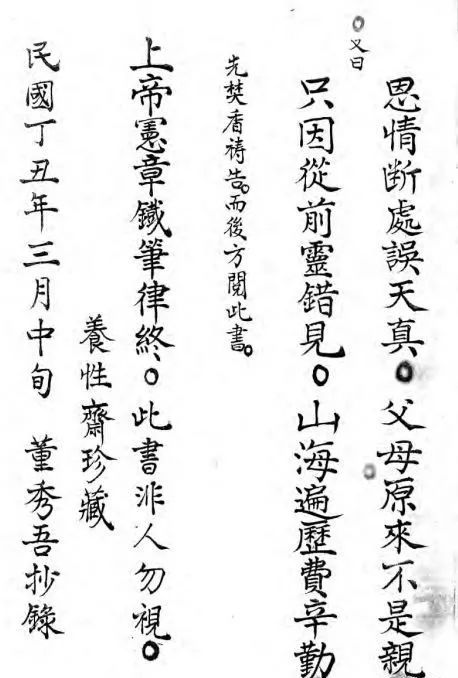 恩情断處誤天真。父母原來不是親
又曰
只因從前靈錯見。山海遍歷費辛勤
先焚香祷告。而後方閱此書。
上帝憲章鐡筆律終。此書非人勿視。
養性齋珍藏
民國丁丑年三月中旬 董秀吾抄錄